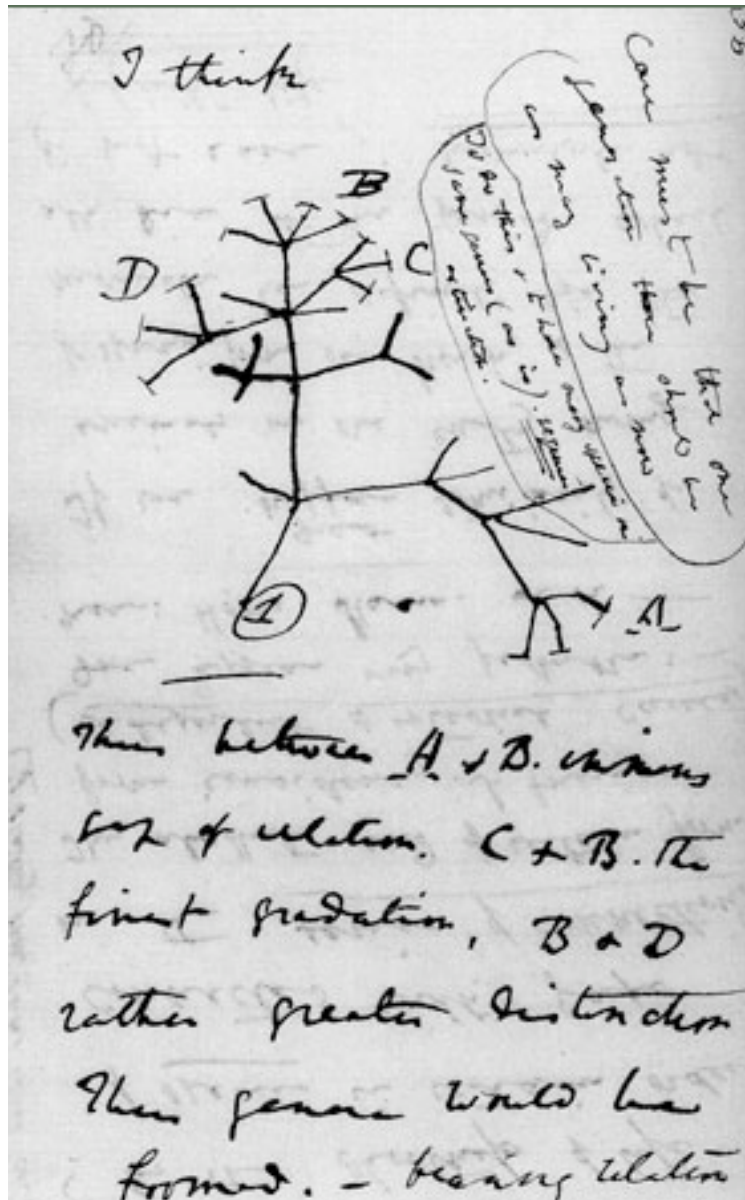 I think
Case must be that one
generation then should be
as many living as now
To do this & to have many species in
same genus (as is). requires
extinction.
B
D
C
A
1
Thus between A & B. immense
gap of relation. C & B. the
finest gradation, B & D
rather greater distinction
Thus genera would be
formed. — bearing relation